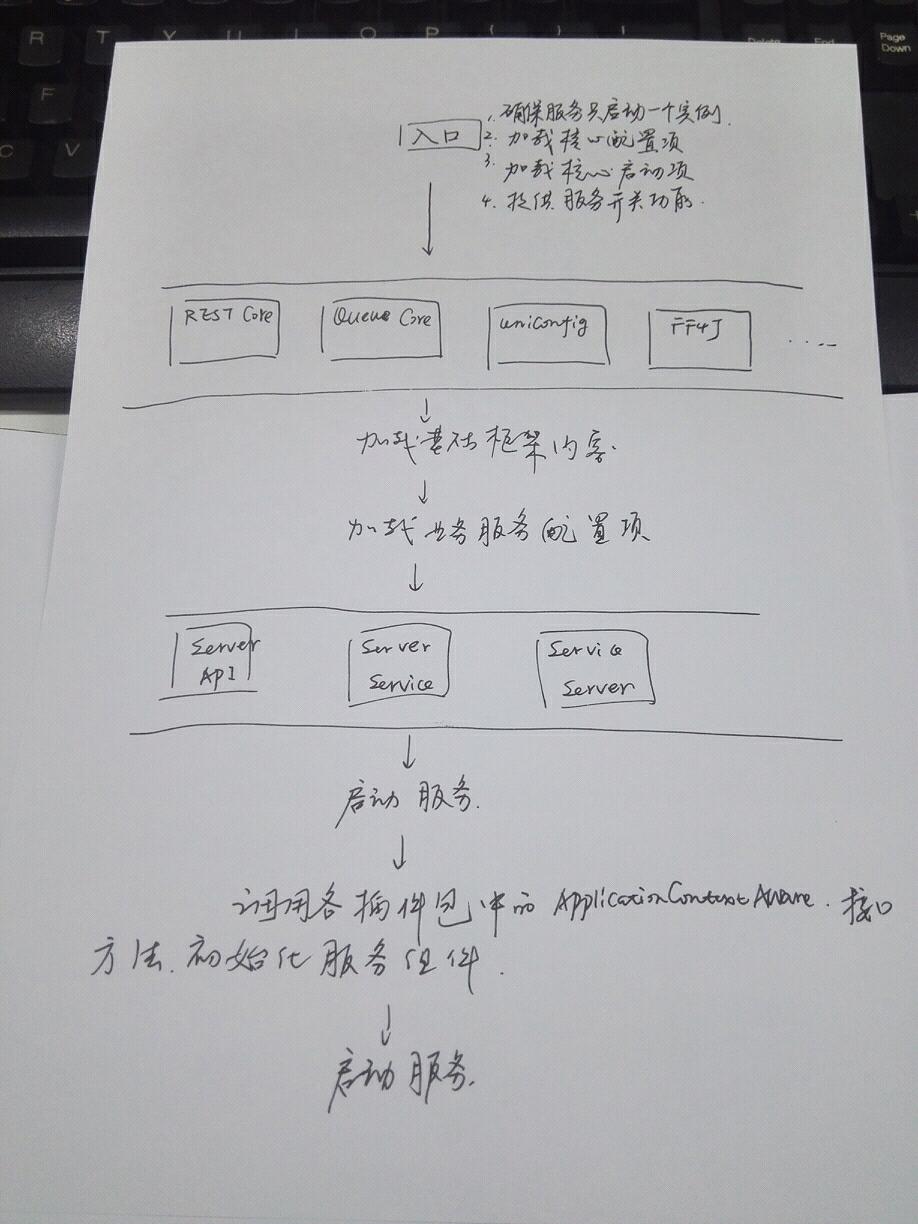 R T Y U I O P { } |
Delete End Page Down
F
C V
入口
1. 确保服务只启动一个实例.
2. 加载核心配置项
3. 加载核心启动项
4. 提供服务开关功能.
REST Core Queue Core uniconfig FF4J ....
加载基础框架内容.
加载业务服务配置项
Server API
Server Service
Service Server
启动服务.
调用各插件包中的 ApplicationContextAware. 接口
方法.初始化服务组件.
启动服务.